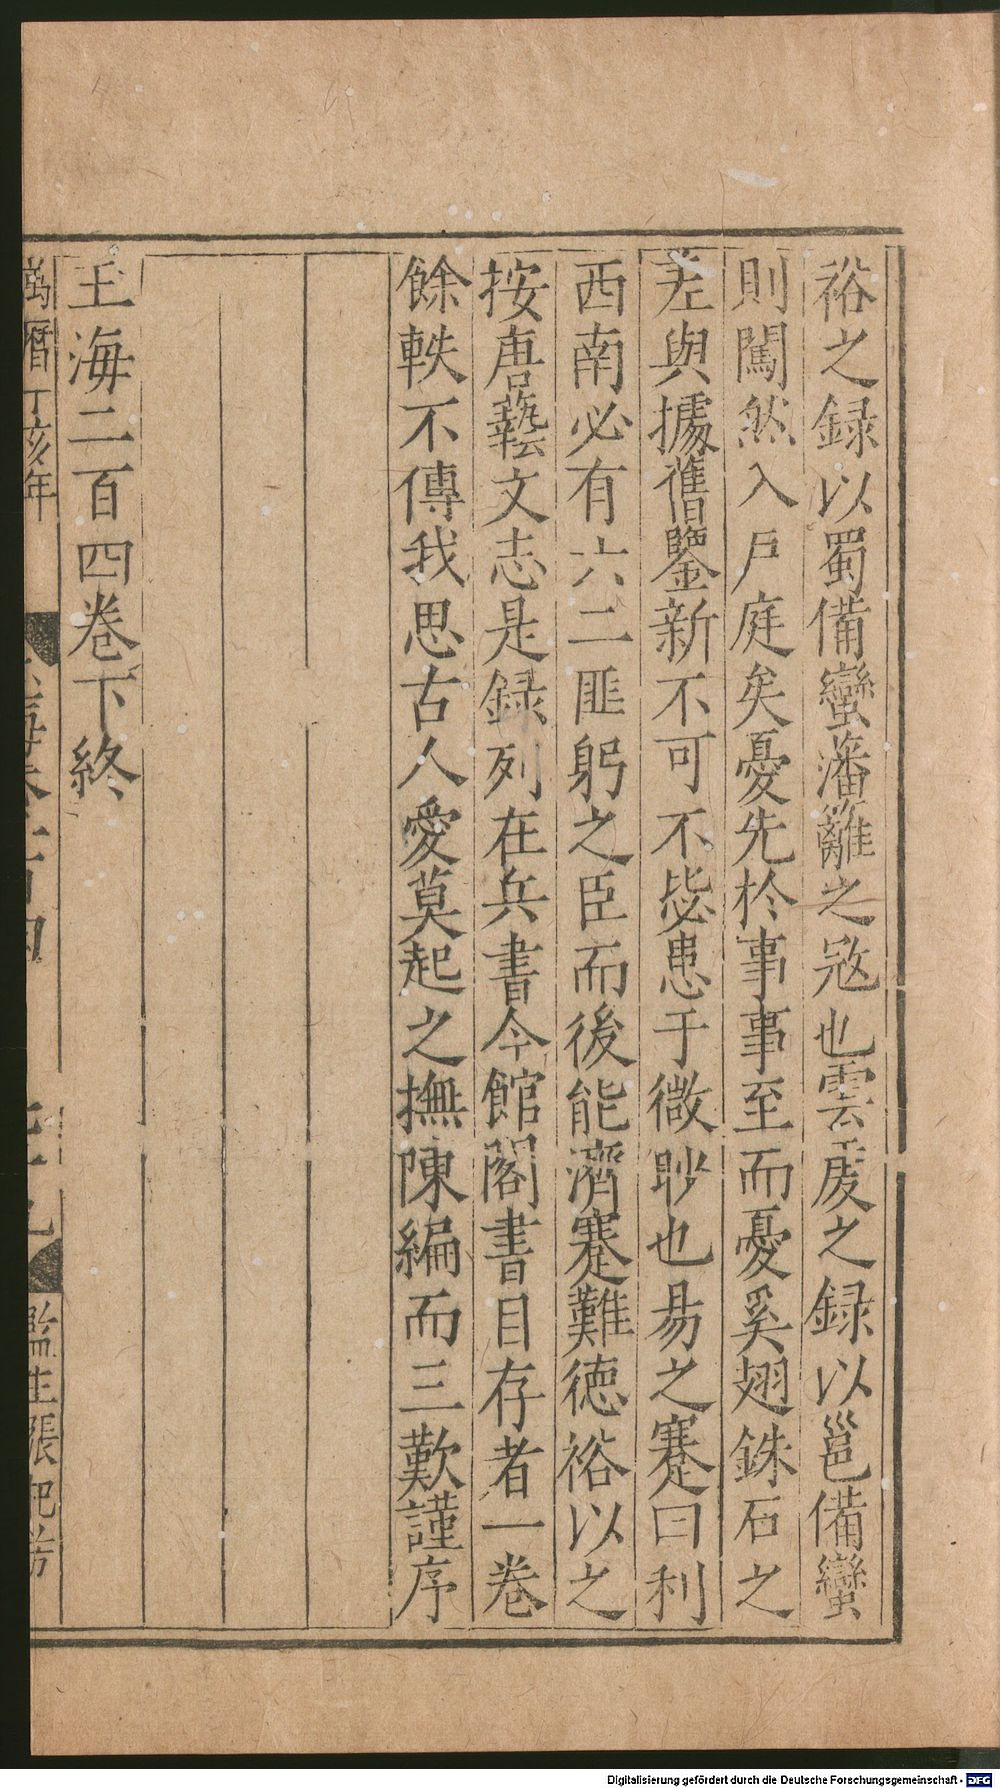 裕之録以蜀備蠻藩籬之㓂也雲䖍之録以邕備蠻
則闖然入戸庭矣憂先於事事至而憂奚翅銖石之
差與據舊鑒新不可不毖患于微眇也易之蹇曰利
西南必有六二匪躬之臣而後能濟蹇難徳裕以之
按唐藝文志是録列在兵書今館閣書目存者一卷
餘軼不傳我思古人愛莫起之撫陳編而三歎謹序
玉海二百四卷下終
萬曆丁亥年
監生張
Digitalisierung gefördert durch die Deutsche Forschungsgemeinschaft - DFG